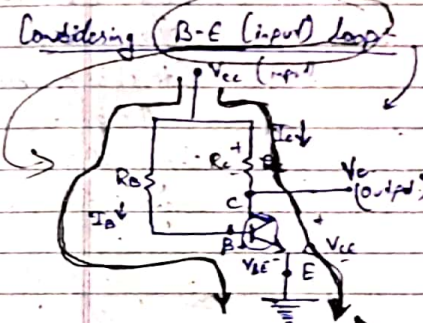 Considering B-E (input) Loop
Vcc (input)
Ic↓
Rc +
RB
Vc
(Output)
C
IB↓
B
+
VBE -
VCE
-
E